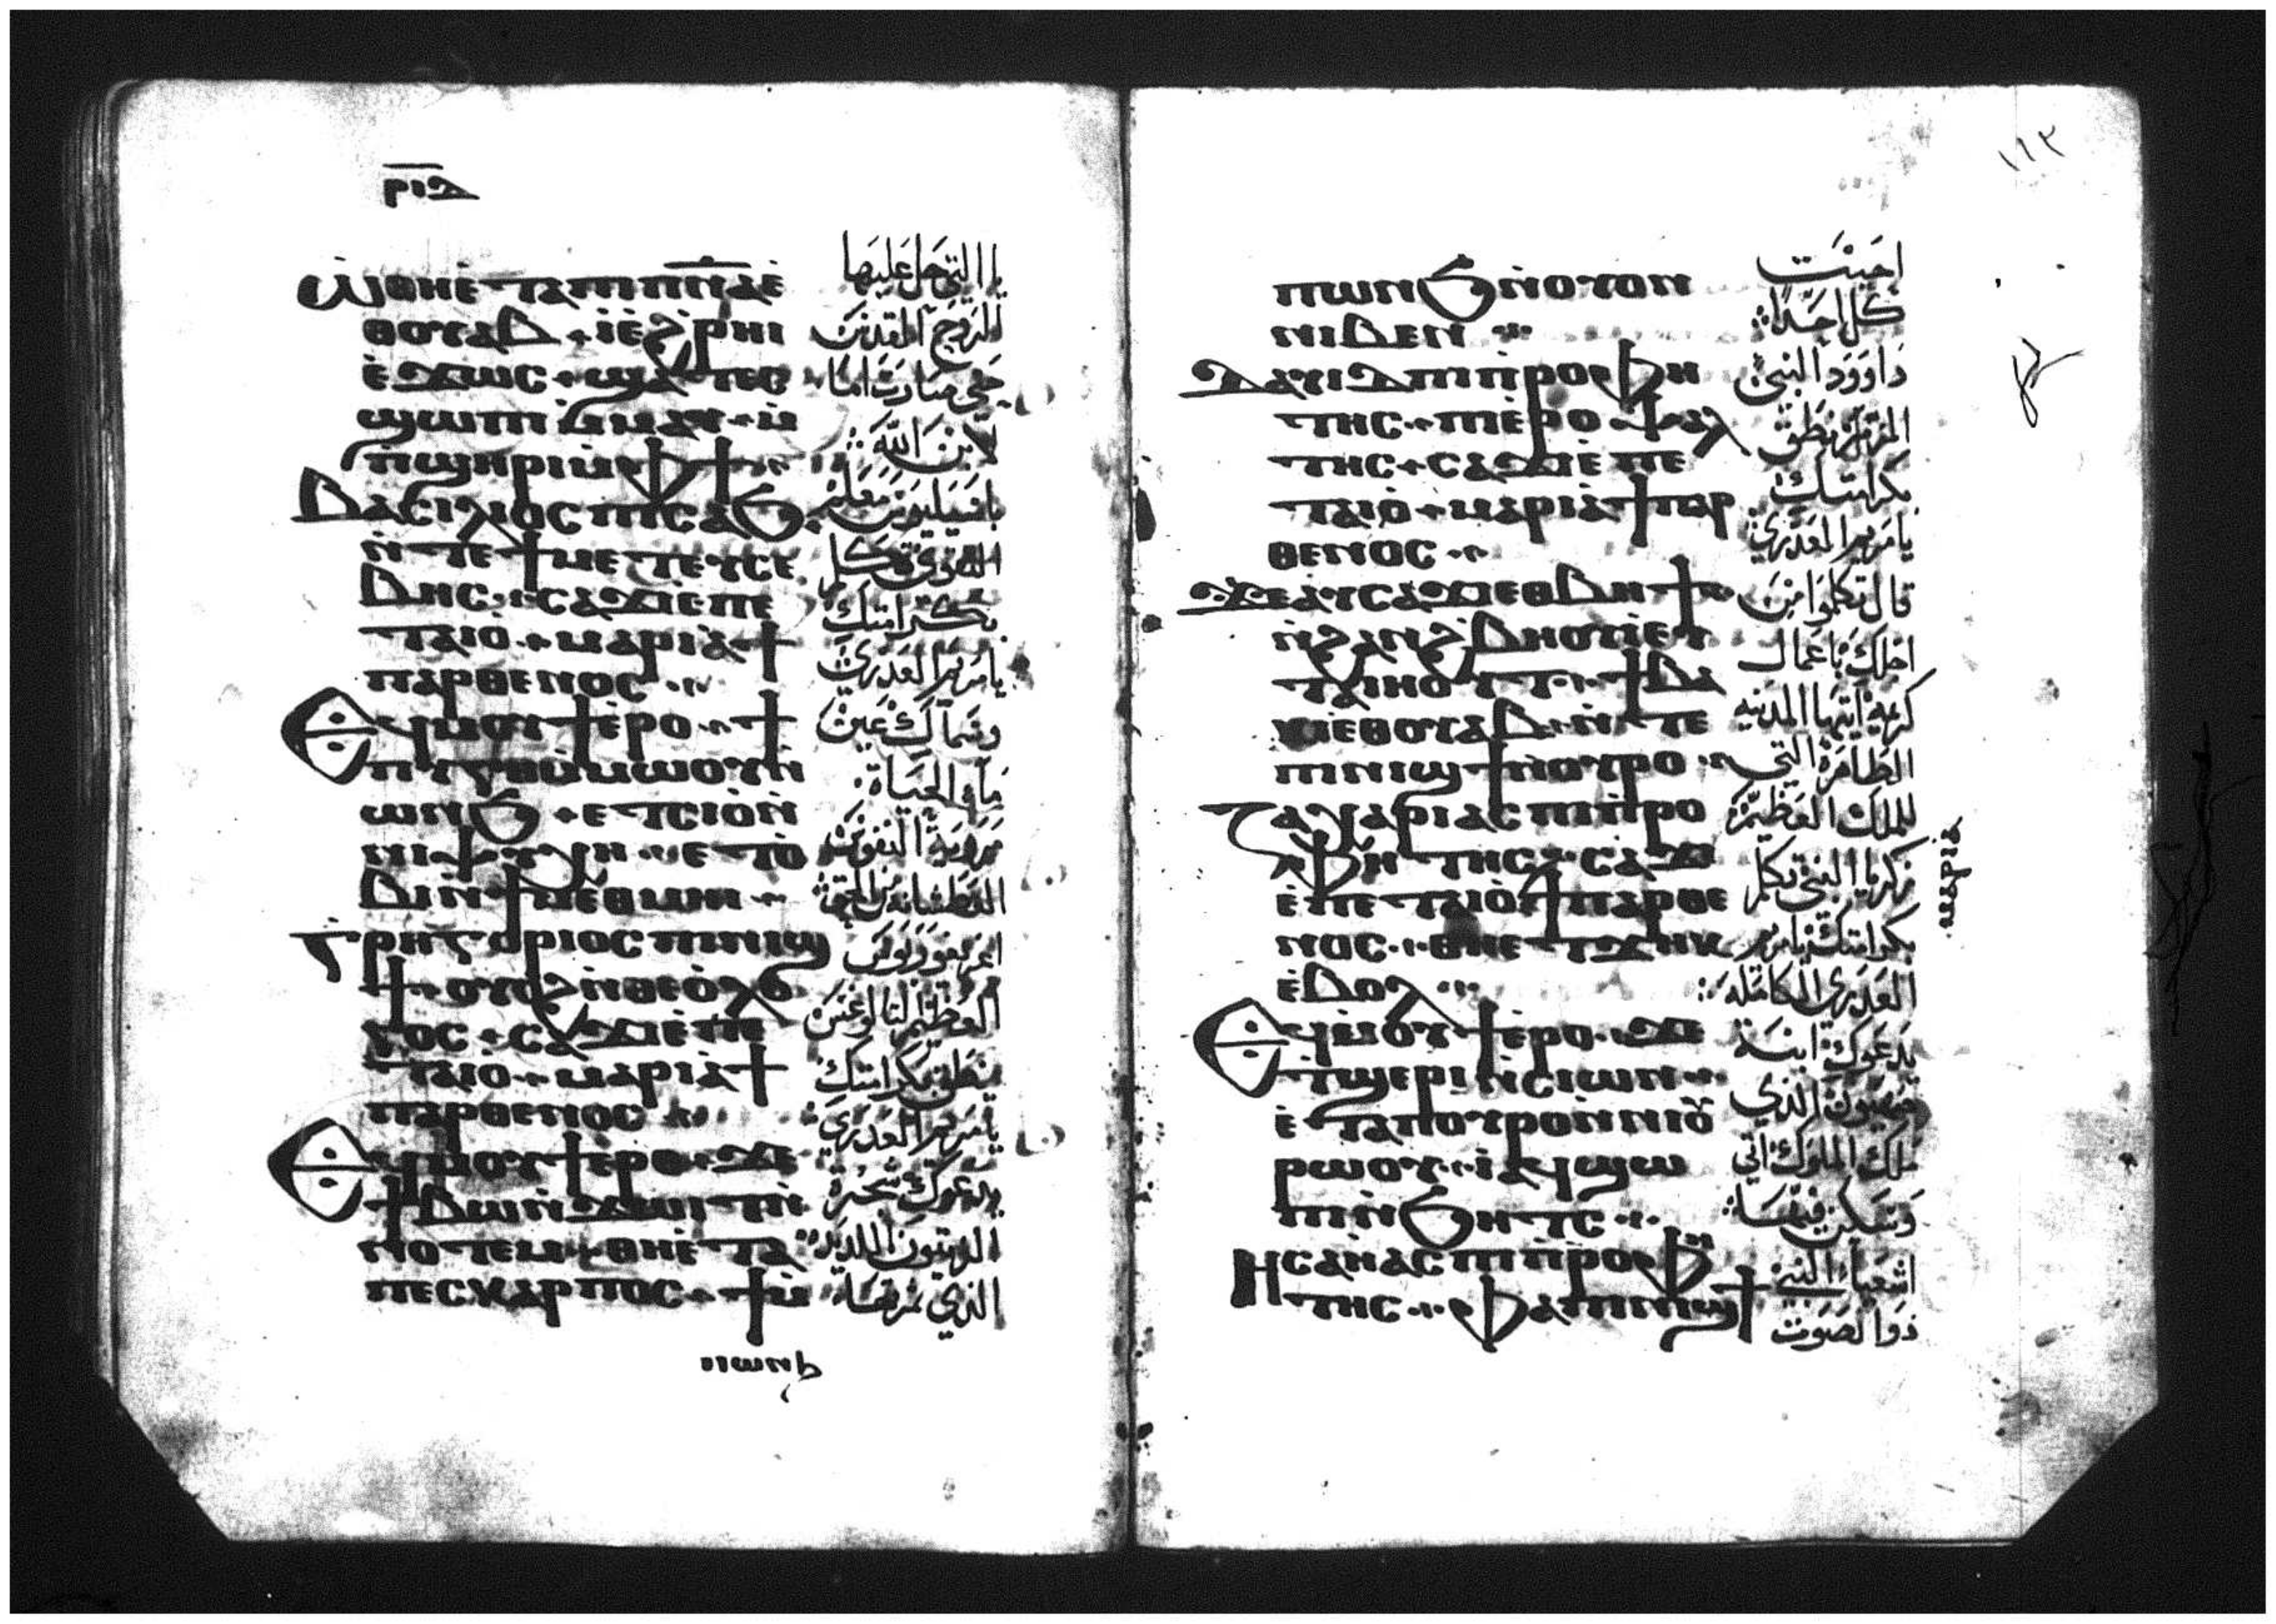 ⲣⲓⲃ
ⲱ̀ ⲑⲏⲉ̀ⲧⲁⲡⲓⲡ̅ⲛ̅ⲁ̅ⲉ̀
ⲑⲟⲩⲁⲃ ⲓ̀ⲉ̀ϩ̀ⲣⲏⲓ
ⲉ̀ϫⲱⲥ ϣⲁⲧⲉⲥ
ϣⲱⲡⲓ ⲙ̀ⲙⲁⲩ ⲙ̀
ⲡϣⲏⲣⲓ ⲙ̀ⲫϯ
ⲃⲁⲥⲓⲗⲓⲟⲥ ⲡⲓⲥⲁϧ
ⲛ̀ⲧⲉϯⲙⲉⲧⲉⲩⲥⲉ
ⲃⲏⲥ ⲥⲁϫⲓⲉ̀ⲡⲉ
ⲧⲁⲓⲟ̀ ⲙⲁⲣⲓⲁ̀ ϯ
ⲡⲁⲣⲑⲉⲛⲟⲥ
ⲉϥⲙⲟⲩϯⲉ̀ⲣⲟ ϯ
ⲡⲩⲅⲏⲙ̀ⲙⲱⲟⲩⲛ̀
ⲱⲛϧ ⲉⲧⲥⲓⲟ̀ⲛ̀
ⲛⲓⲯⲩⲭⲏ ⲉⲧⲟ̀
ⲃⲓⲛ̀ϯⲙⲉⲑⲙⲏⲓ
ⲅⲣⲏⲅⲟⲣⲓⲟⲥ ⲡⲓⲛⲓϣ
ϯ ⲟⲩⲟϩ ⲛ̀ⲑⲉⲟ̀ⲗⲟ
ⲅⲟⲥ ⲥⲁϫⲓⲉ̀ⲡⲉ
ⲧⲁⲓⲟ̀ ⲙⲁⲣⲓⲁ̀ ϯ
ⲡⲁⲣⲑⲉⲛⲟⲥ
ⲉϥⲙⲟⲩϯⲉ̀ⲣⲟ ϫⲉ
ϯⲃⲱⲛ̀ϫⲱⲓⲧⲛ̀
ⲛⲟⲧⲉⲙ ⲑⲏⲉ̀ⲧⲁ
ⲡⲉⲥⲕⲁⲣⲡⲟⲥ ϯⲙ̀
يا التي حل عليها
الروح المقدس
حتى صارت اما
لابن الله
باسيليوس معلم
التقوى تكلم
بكرامتك
يا مريم العذرى
وسماك عين
ماء الحياة
مروية النفوس
العظيم الثالوغس
ينطق بكرامتك
يا مريم العذرى
يدعوك شجرة
الزيتون اللذيذ
الذي ثمرتها
ⲡⲱⲛϧ ⲛ̀ⲟⲩⲟⲛ
ⲛⲓⲃⲉⲛ
ⲇⲁⲩⲓⲇ ⲡⲓⲡ̀ⲣⲟⲫⲏ
ⲧⲏⲥ ⲡⲓⲉ̀ⲣⲟⲯⲁⲗ
ⲧⲏⲥ ⲥⲁϫⲓⲉ̀ⲡⲉ
ⲧⲁⲓⲟ̀ ⲙⲁⲣⲓⲁ̀ ϯⲡⲁⲣ
ⲑⲉⲛⲟⲥ
ϫⲉⲁⲩⲥⲁϫⲓⲉⲑⲃⲏϯ
ⲛ̀ϩⲁⲛϩ̀ⲃⲏⲟⲩⲓ̀ⲉⲩ
ⲧⲁⲓⲏⲟⲩⲧ ϯⲃⲁ
ⲕⲓⲉⲑⲟⲩⲁⲃ ⲛ̀ⲧⲉ
ⲡⲓⲛⲓϣϯⲛ̀ⲟⲩⲣⲟ
ⲍⲁⲭⲁⲣⲓⲁⲥ ⲡⲓⲡ̀ⲣⲟ
ⲫⲏⲧⲏⲥ ⲥⲁϫⲓ
ⲉ̀ⲡⲉⲧⲁⲓⲟ̀ ϯⲡⲁⲣⲑⲉ
ⲛⲟⲥ ⲑⲏⲉⲧϫⲏⲕ
ⲉ̀ⲃⲟⲗ
ⲙⲁⲣⲓⲁ̀
ⲉϥⲙⲟⲩϯⲉ̀ⲣⲟ ϫⲉ
ⲧϣⲉⲣⲓ ⲛ̀ⲥⲓⲱⲛ
ⲉ̀ⲧⲁⲡⲟⲩⲣⲟ ⲛ̀ⲛⲓⲟⲩ
ⲣⲱⲟⲩ ⲓ̀ ⲁϥϣⲱ
ⲡⲓ ⲛ̀ϧⲏⲧⲥ
ⲏⲥⲁⲏ̀ⲁⲥ ⲡⲓⲡ̀ⲣⲟⲫⲏ
ⲧⲏⲥ ⲫⲁⲡⲓⲛⲓϣϯ
١١٢
احييت
كل احد
داوود النبى
المرتل ينطق
بكرامتك
يا مريم العذرى
قال تكلموا من
اجلك باعمال
كريمة ايتها المدينه
الطاهرة التي
للملك العظيم
زكريا النبي تكلم
بكرامتك يا مريم
العذرى الكامله
يدعوك ابنة
صهيون الذي
ملك الملوك اتى
وسكن فيها
اشعياء النبي
ذوا الصوت